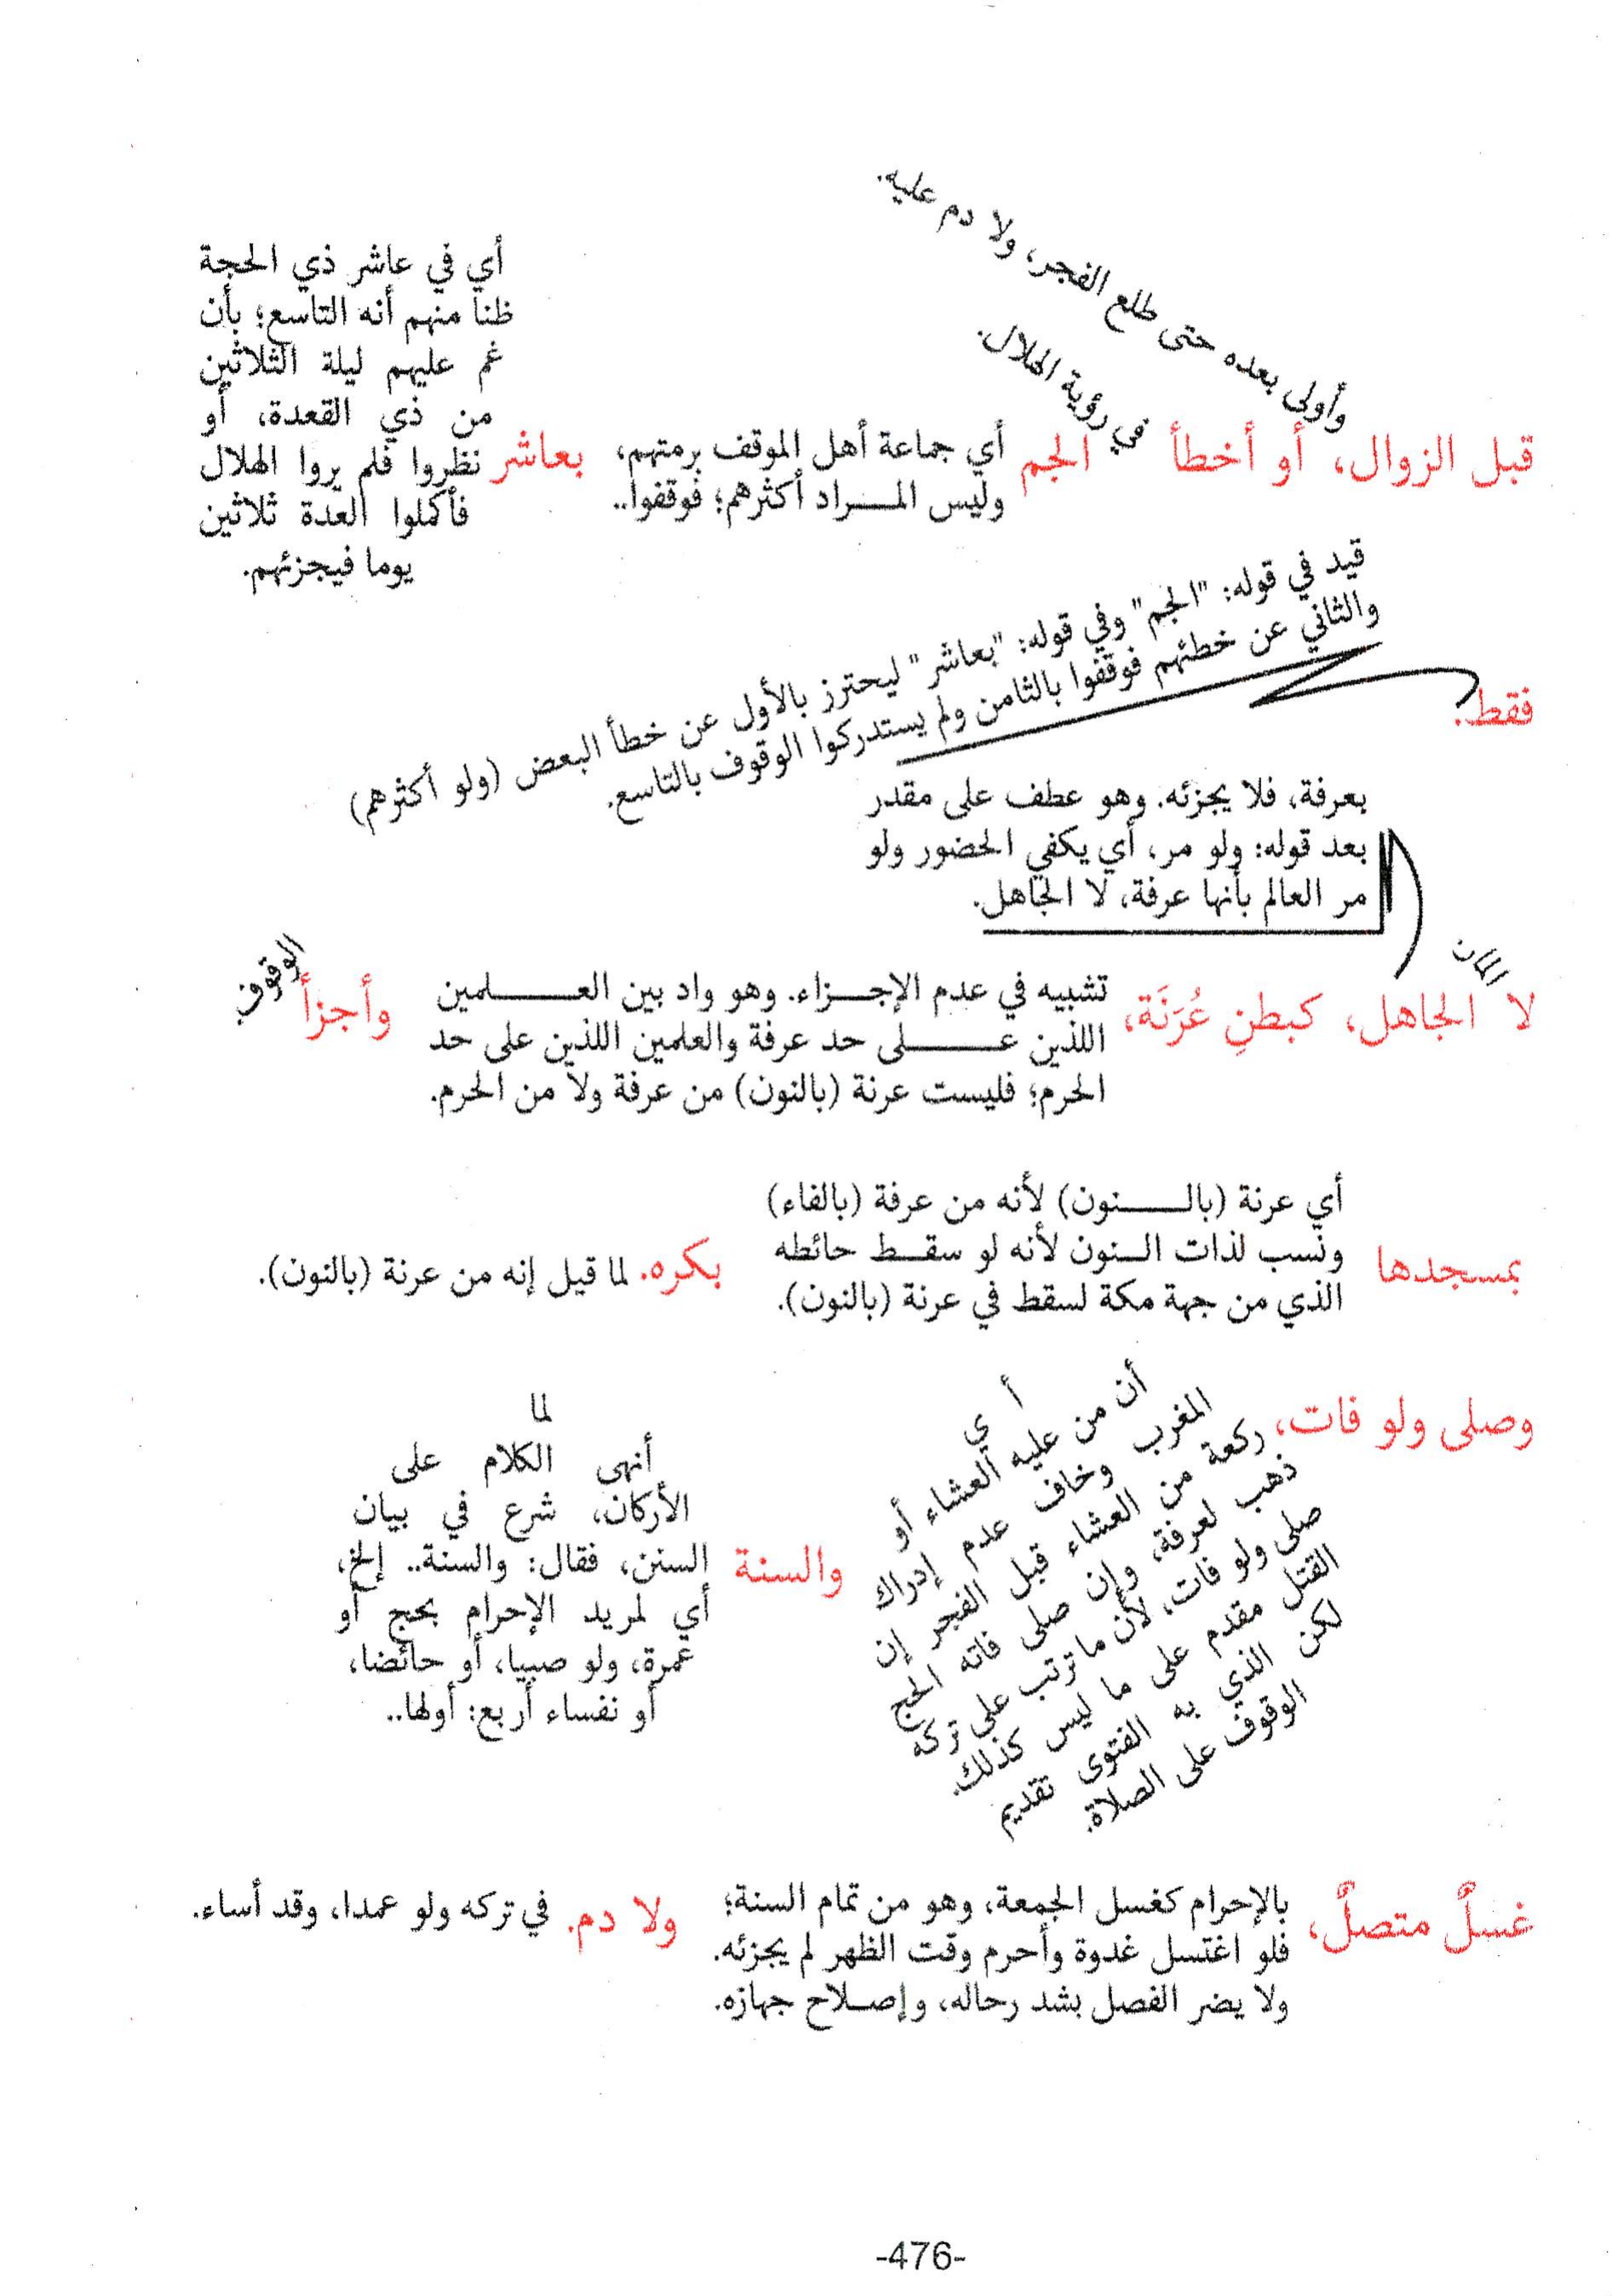 قبل الزوال،
وأولى بعده حتى طلع الفجر، ولا دم عليه.
أو أخطأ الجم
في رؤية الهلال.
أي جماعة أهل الموقف برمتهم،
وليس المراد أكثرهم؛ فوقفوا..
بعاشر
أي في عاشر ذي الحجة
ظنا منهم أنه التاسع؛ بأن
غم عليهم ليلة الثلاثين
من ذي القعدة، أو
نظروا فلم يروا الهلال
فأكملوا العدة ثلاثين
يوما فيجزئهم.
فقط.
قيد في قوله: "الجم" وفي قوله: "بعاشر" ليحترز بالأول عن خطأ البعض (ولو أكثرهم)
والثاني عن خطئهم فوقفوا بالثامن ولم يستدركوا الوقوف بالتاسع.
لا الجاهل،
المار
بعرفة، فلا يجزئه. وهو عطف على مقدر
بعد قوله: ولو مر، أي يكفي الحضور ولو
مر العالم بأنها عرفة، لا الجاهل.
كبطنِ عُرَنَة،
تشبيه في عدم الإجزاء. وهو واد بين العلمين
اللذين على حد عرفة والعلمين اللذين على حد
الحرم؛ فليست عرنة (بالنون) من عرفة ولا من الحرم.
وأجزأ
الوقوف
بمسجدها
أي عرنة (بالنون) لأنه من عرفة (بالفاء)
ونسب لذات النون لأنه لو سقط حائطه
الذي من جهة مكة لسقط في عرنة (بالنون).
بكره. لما قيل إنه من عرنة (بالنون).
وصلى ولو فات،
أي
أن من عليه العشاء أو
المغرب وخاف عدم إدراك
ركعة من العشاء قبل الفجر إن
ذهب لعرفة، وإن صلى فاته الحج
صلى ولو فات، لأن ما ترتب على تركه
القتل مقدم على ما ليس كذلك.
لكن الذي به الفتوى تقديم
الوقوف على الصلاة.
والسنة
لما
أنهى الكلام على
الأركان، شرع في بيان
السنن، فقال: والسنة.. إلخ،
أي لمريد الإحرام بحج أو
عمرة، ولو صبيا، أو حائضا،
أو نفساء أربع: أولها..
غسلٌ متصلٌ،
بالإحرام كغسل الجمعة، وهو من تمام السنة؛
فلو اغتسل غدوة وأحرم وقت الظهر لم يجزئه.
ولا يضر الفصل بشد رحاله، وإصلاح جهازه.
ولا دم. في تركه ولو عمدا، وقد أساء.
-476-